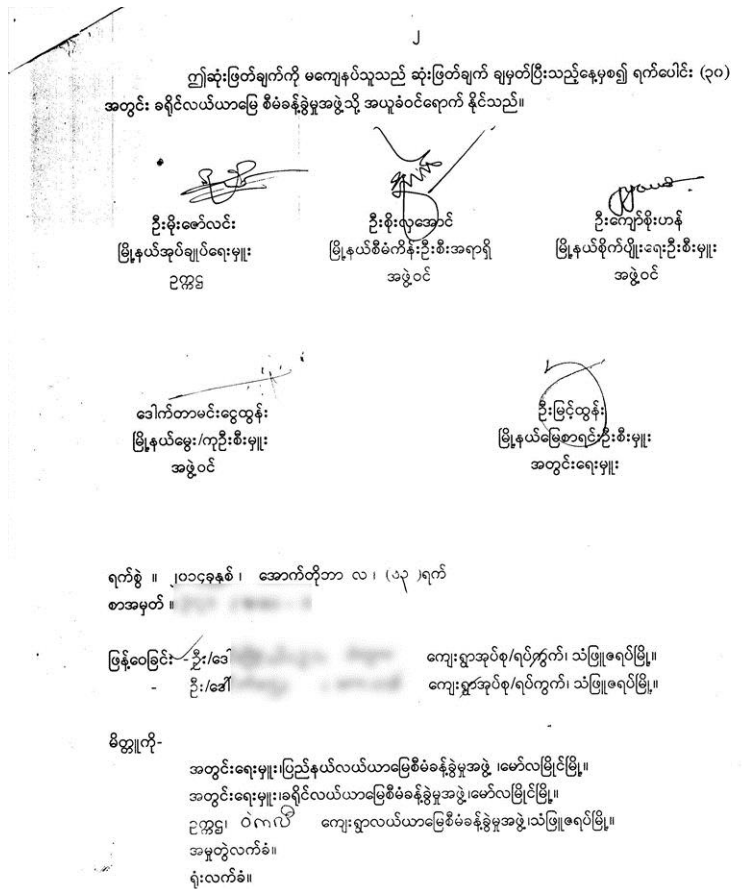 ၂
ဤဆုံးဖြတ်ချက်ကို မကျေနပ်သူသည် ဆုံးဖြတ်ချက် ချမှတ်ပြီးသည့်နေ့မှစ၍ ရက်ပေါင်း (၃၀)
အတွင်း ခရိုင်လယ်ယာမြေ စီမံခန့်ခွဲမှုအဖွဲ့သို့ အယူခံဝင်ရောက် နိုင်သည်။
ဦးမိုးဇော်လင်း ဦးစိုးလှအောင် ဦးကျော်စိုးဟန်
မြို့နယ်အုပ်ချုပ်ရေးမှူး မြို့နယ်စီမံကိန်းဦးစီးအရာရှိ မြို့နယ်စိုက်ပျိုးရေးဦးစီးမှူး
ဥက္ကဋ္ဌ အဖွဲ့ဝင် အဖွဲ့ဝင်
ဒေါက်တာမင်းငွေထွန်း ဦးမြင့်ထွန်း
မြို့နယ်မွေး/ကုဦးစီးမှူး မြို့နယ်မြေစာရင်းဦးစီးမှူး
အဖွဲ့ဝင် အတွင်းရေးမှူး
ရက်စွဲ ။ ၂၀၁၄ခုနှစ် ၊ အောက်တိုဘာ လ ၊ ( )ရက်
စာအမှတ် ။
ဖြန့်ဝေခြင်း - ဦး/ဒေါ် ကျေးရွာအုပ်စု/ရပ်ကွက်၊ သံဖြူဇရပ်မြို့။
- ဦး/ဒေါ် ကျေးရွာအုပ်စု/ရပ်ကွက်၊ သံဖြူဇရပ်မြို့။
မိတ္တူကို-
အတွင်းရေးမှူး၊ပြည်နယ်လယ်ယာမြေစီမံခန့်ခွဲမှုအဖွဲ့ ၊မော်လမြိုင်မြို့။
အတွင်းရေးမှူး၊ခရိုင်လယ်ယာမြေစီမံခန့်ခွဲမှုအဖွဲ့၊မော်လမြိုင်မြို့။
ဥက္ကဋ္ဌ၊ ဝဲကလိ ကျေးရွာလယ်ယာမြေစီမံခန့်ခွဲမှုအဖွဲ့၊သံဖြူဇရပ်မြို့။
အမှုတွဲလက်ခံ။
ရုံးလက်ခံ။